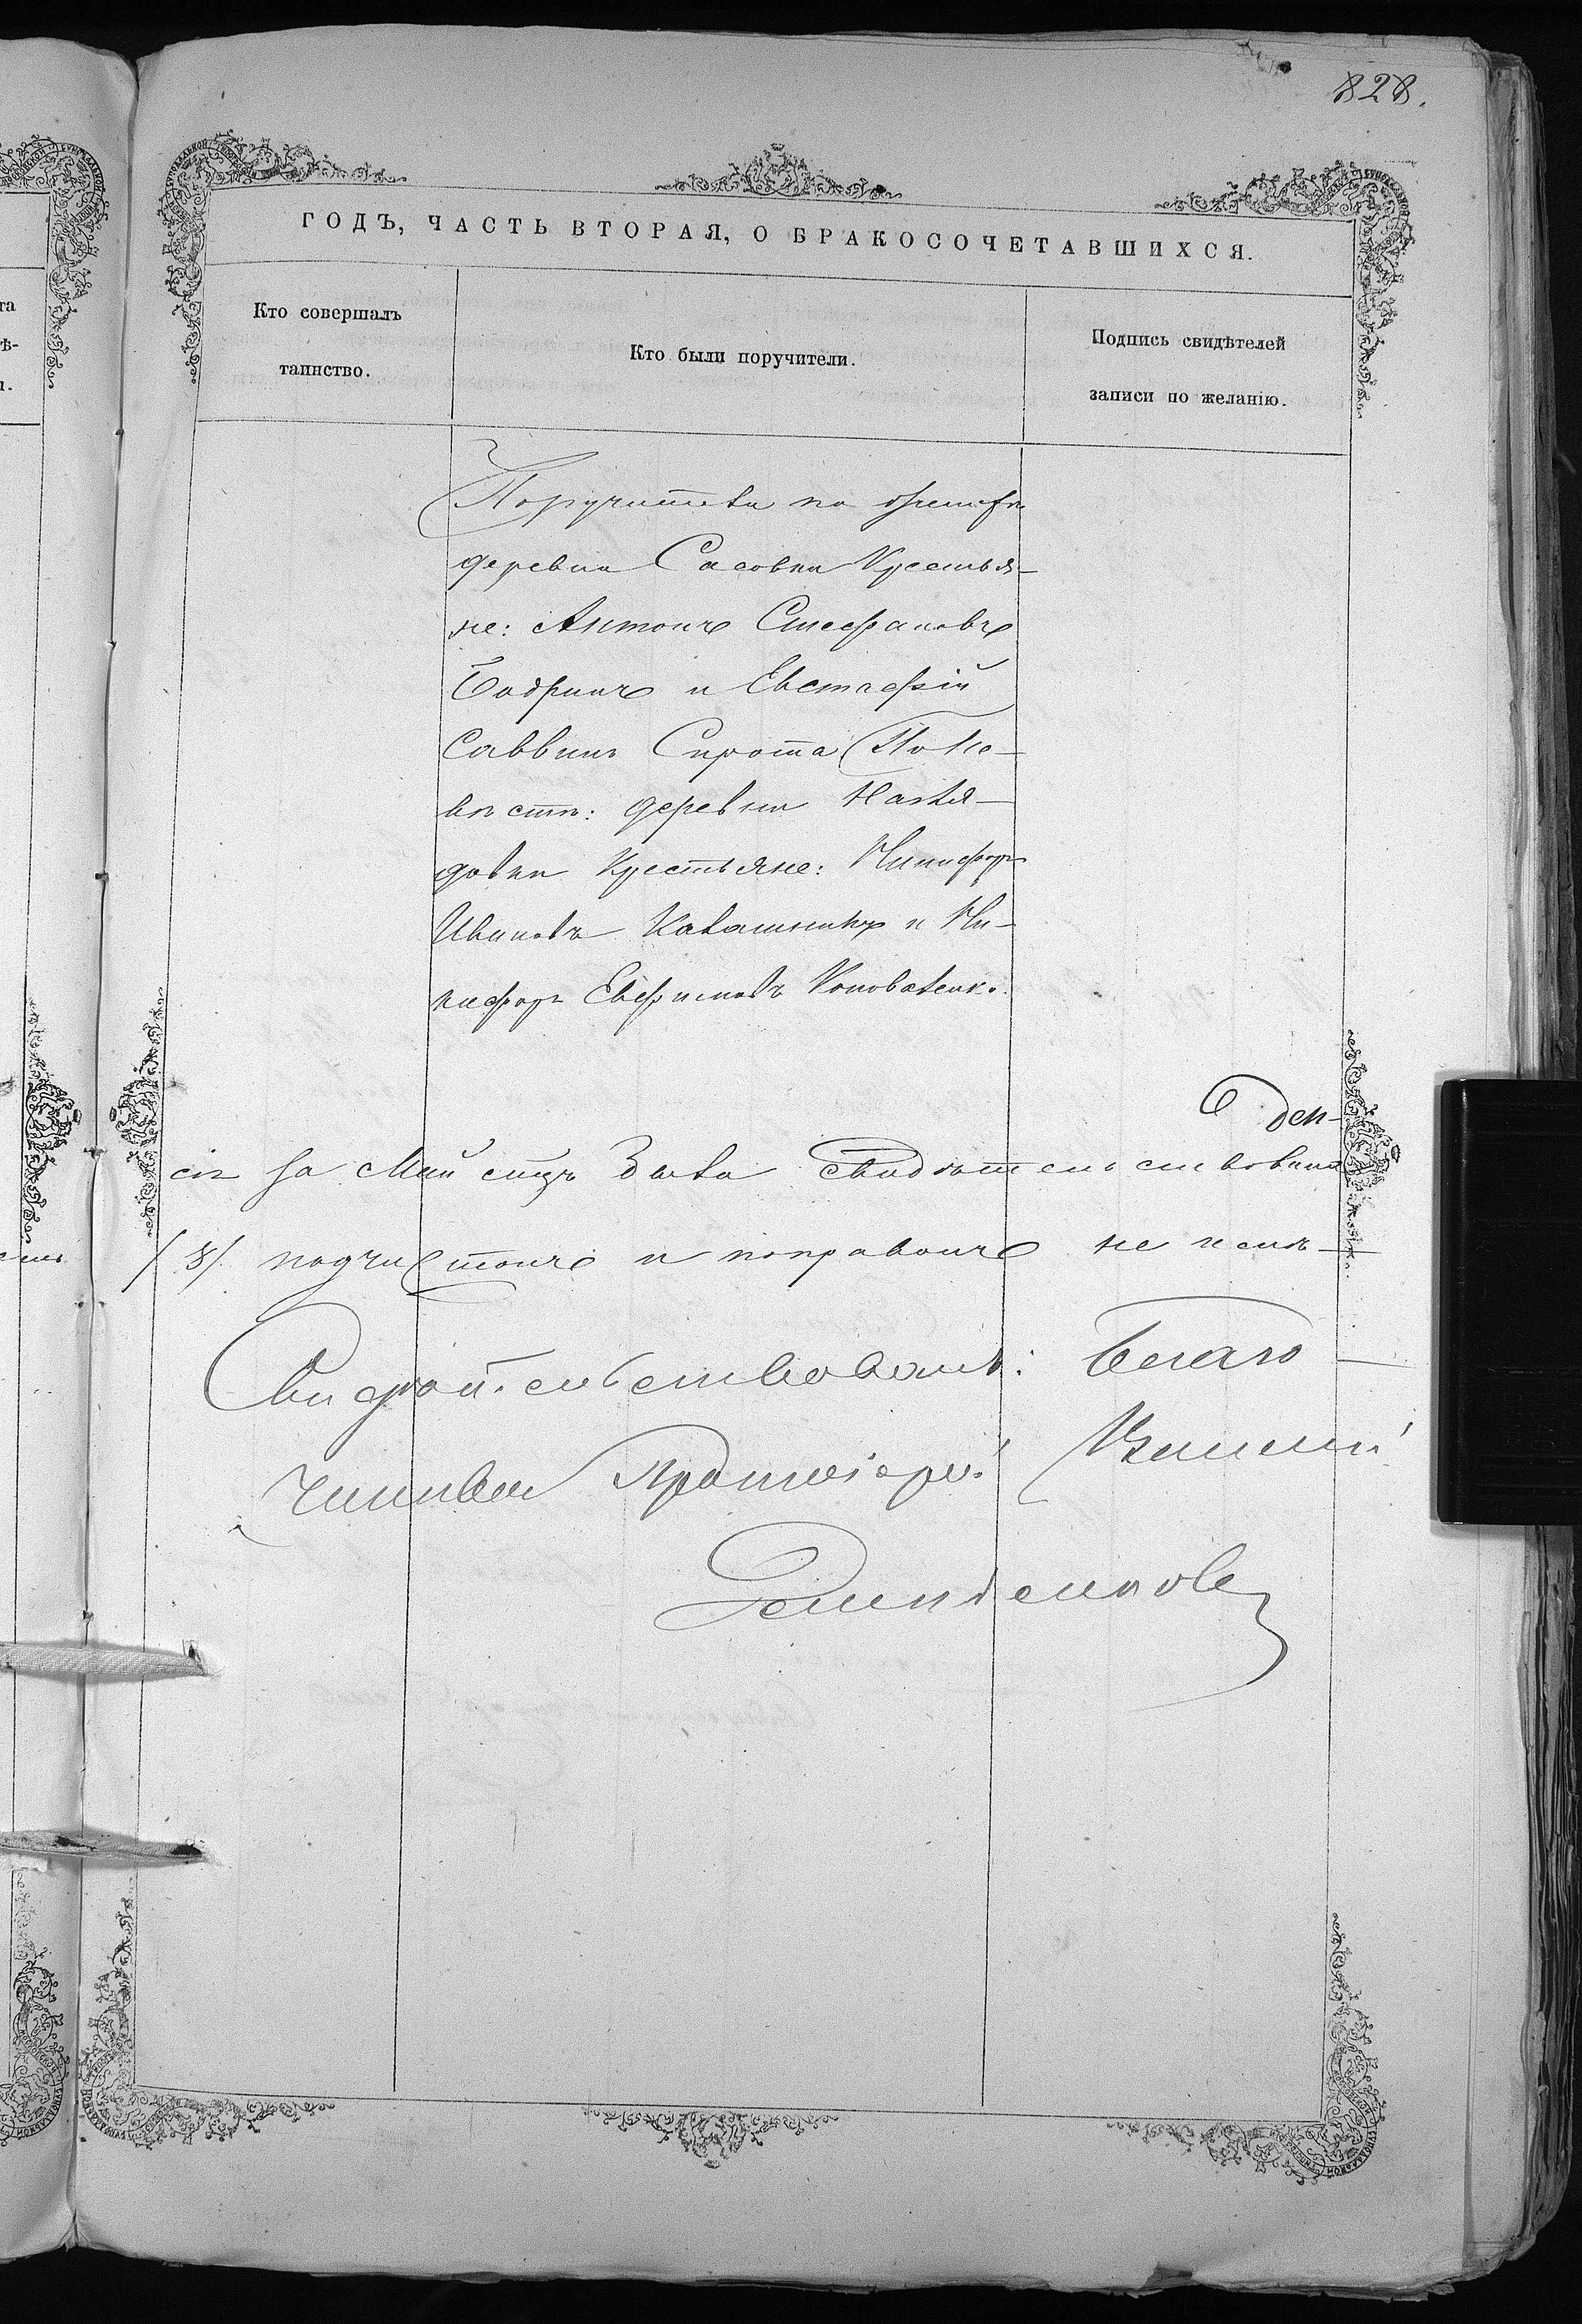 828.
ГОДЪ, ЧАСТЬ ВТОРАЯ, О БРАКОСОЧЕТАВШИХСЯ.
Кто совершалъ
таинство.
Кто были поручители.
Подпись свидѣтелей
записи по желанію.
Поручители по женихѣ
деревни Сасовки Крестья-
не: Антонъ Стефановъ
Бодринъ и Евстафій
Саввинъ Сирота По не-
вѣстѣ: деревни
довки Крестьяне: Никифоръ
Ивановъ Калашникъ и Ни-
кифоръ Евфимовъ Коноваленко.
сія за Май мцъ была свидѣтельствована
/8/. подчистокъ и поправокъ не
Свидѣтельствовалъ: Благо-
чинный Протоіерей